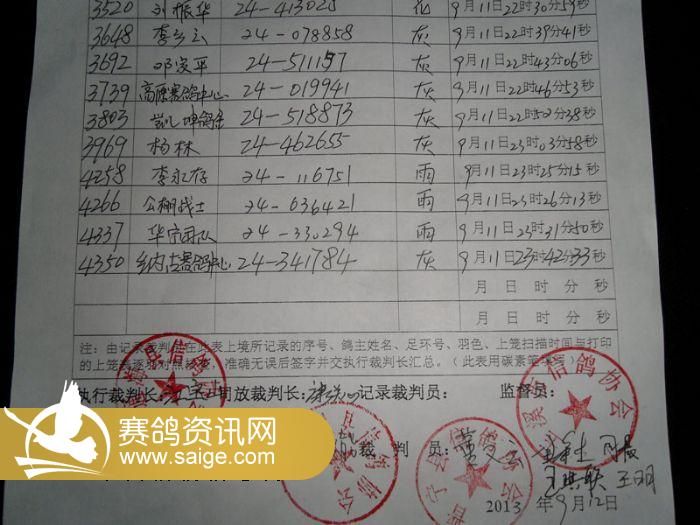 3520 刘振华 24-413025 花 9月11日22时30分59秒
3648 李乡云 24-078858 灰 9月11日22时39分41秒
3692 邓发平 24-511157 灰 9月11日22时43分06秒
3739 高原赛鸽中心 24-019941 灰 9月11日22时46分53秒
3803 24-518873 灰 9月11日22时52分38秒
3969 杨林 24-462655 灰 9月11日23时03分58秒
4258 李永存 24-116751 雨 9月11日23时25分15秒
4266 公棚战士 24-636421 雨 9月11日23时26分13秒
4337 团队 24-330294 雨 9月11日23时31分50秒
4350 赛鸽中心 24-341784 灰 9月11日23时42分33秒
月 日 时 分 秒
月 日 时 分 秒
注：由记录裁判员在此表上填所记录的序号、鸽主姓名、足环号、羽色、上笼扫描时间与打印
的上笼 逐 对照核 准确无误后签字并交执行裁判长汇总。（此表用碳素笔填写）
执行裁判长: 司放裁判长: 记录裁判员: 监督员:
裁 判 员:
2013 年9月12日
县信鸽协会
信鸽协会
宁县信鸽协会
溪县信鸽协会
赛鸽资讯网
www.saige.com